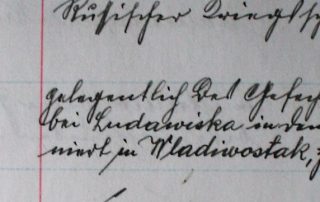 Russischer Kriegssch
gelegentlich des Gefech
bei Ludawiska in den
niert in Wladiwostak,